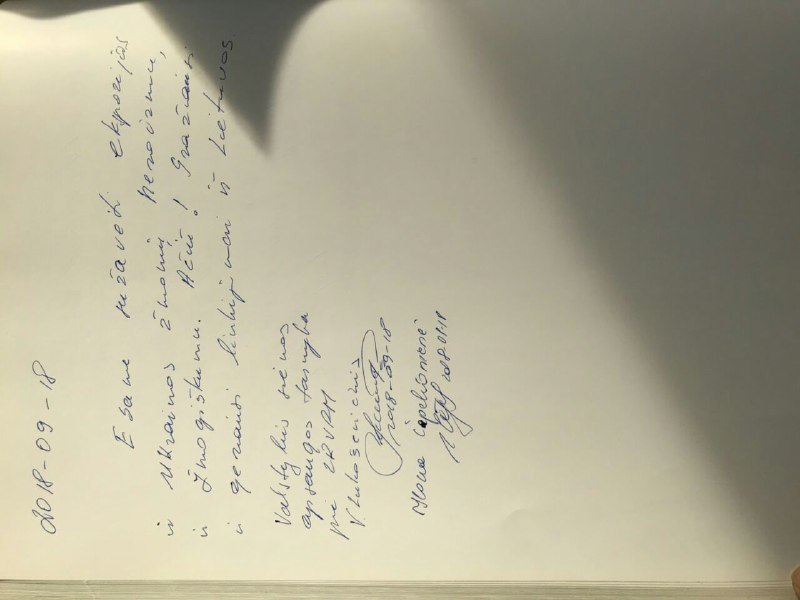 2018-09-18
Esame sužavėti ekspozicijos
ir Ukrainos žmonių nuoširdumu,
ir žmogiškumu. Ačiū! Gražiausi
ir geriausi linkėjimai iš Lietuvos.
Valstybės sienos
apsaugos tarnyba
prie LR VRM
V. Lukoševičius
2018-09-18
Ilona
2018.09.18